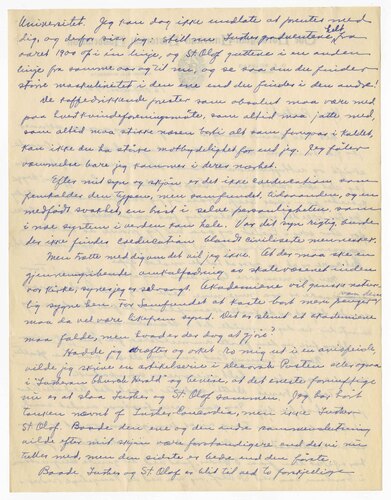 Universitet. Jeg kan dog ikke undlate at prentes med
dig, og derfor sier jeg: still nu Luther graduentene helt fra
aaret 1900 op i en linje, og St Olof guttene i en anden
linje fra samme aar og til nu, og se saa om du finder
större maskulinitet i den ene end du finder i den andre!
De kaffedrikkende prester som absolut maa være med
paa hvert kvindeforeningsmöte, som altid maa jatte med,
som altid maa stikke nesen borti alt som fungas i kaldet,
kan ikke du ha större motbydelighet for end jeg. Jeg föler
vammelse bare jeg kommer i deres nærhet.
Efter mit syn og skjön er det ikke coeducation som
fremkalder den typen, men samfundet, tidsaanden, og en
medfödt svakhet, en brist i selve personligheten, som
i noe system i verden kan hele. Var dit syn rigtig, burde
der ikke findes coeducation blandt civiliserte mennesker.
Men trætte med dig om det vil jeg ikke. At der maa ske en
gjennemgripende omkalfatring av skolevæsenet inden
vor kirke, synes jeg er selvsagt. Akademiene vil ganske natur-
lig sygne hen. For Samfundet at kaste bort mere penger paa dem
maa da vel være likefrem synd. Det er slemt at akademiene
maa falde, men hvad er der dog at gjöre?
Hadde jeg kræfter og orket ta mig ut i en avispenik,
vilde jeg skrive en artikelserie i Decorah Posten eller ogsaa
i "Lutheran Church Herald" og bevise, at det eneste fornuftige
nu er at slaa Luther og St Olof sammen. Jeg har hört
tanken nævnt af Luther Concordia, men ikke Luther
St. Olof. Baade den ene og den andre sammensmeltning
vilde efter mit skjön være forstandigere end det vi nu
tuller med, men den sidste er bedre end den förste.
Baade Luther og St Olof er blit til ved to forskjellige